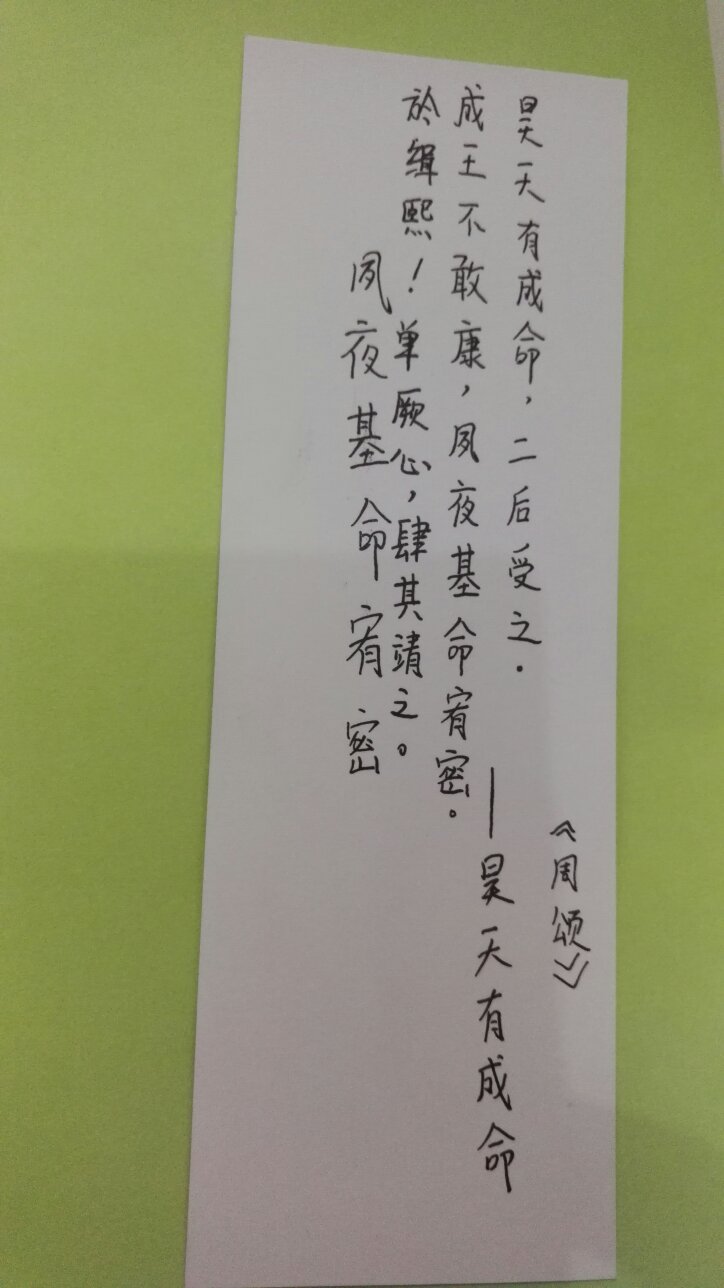 昊天有成命，二后受之.
成王不敢康，夙夜基命宥密。
於缉熙！单厥心，肆其靖之。
夙夜基命宥密
《周颂》
——昊天有成命